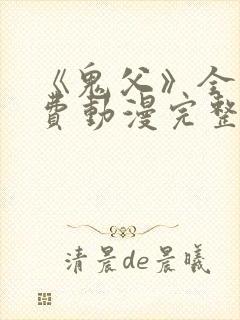 《鬼父》全
费动漫完整
清晨de晨曦